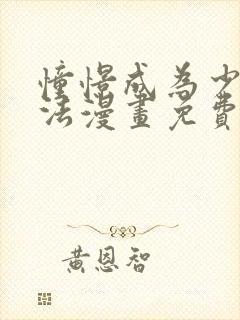 憧憬成為少
法漫畫免費
黃恩智